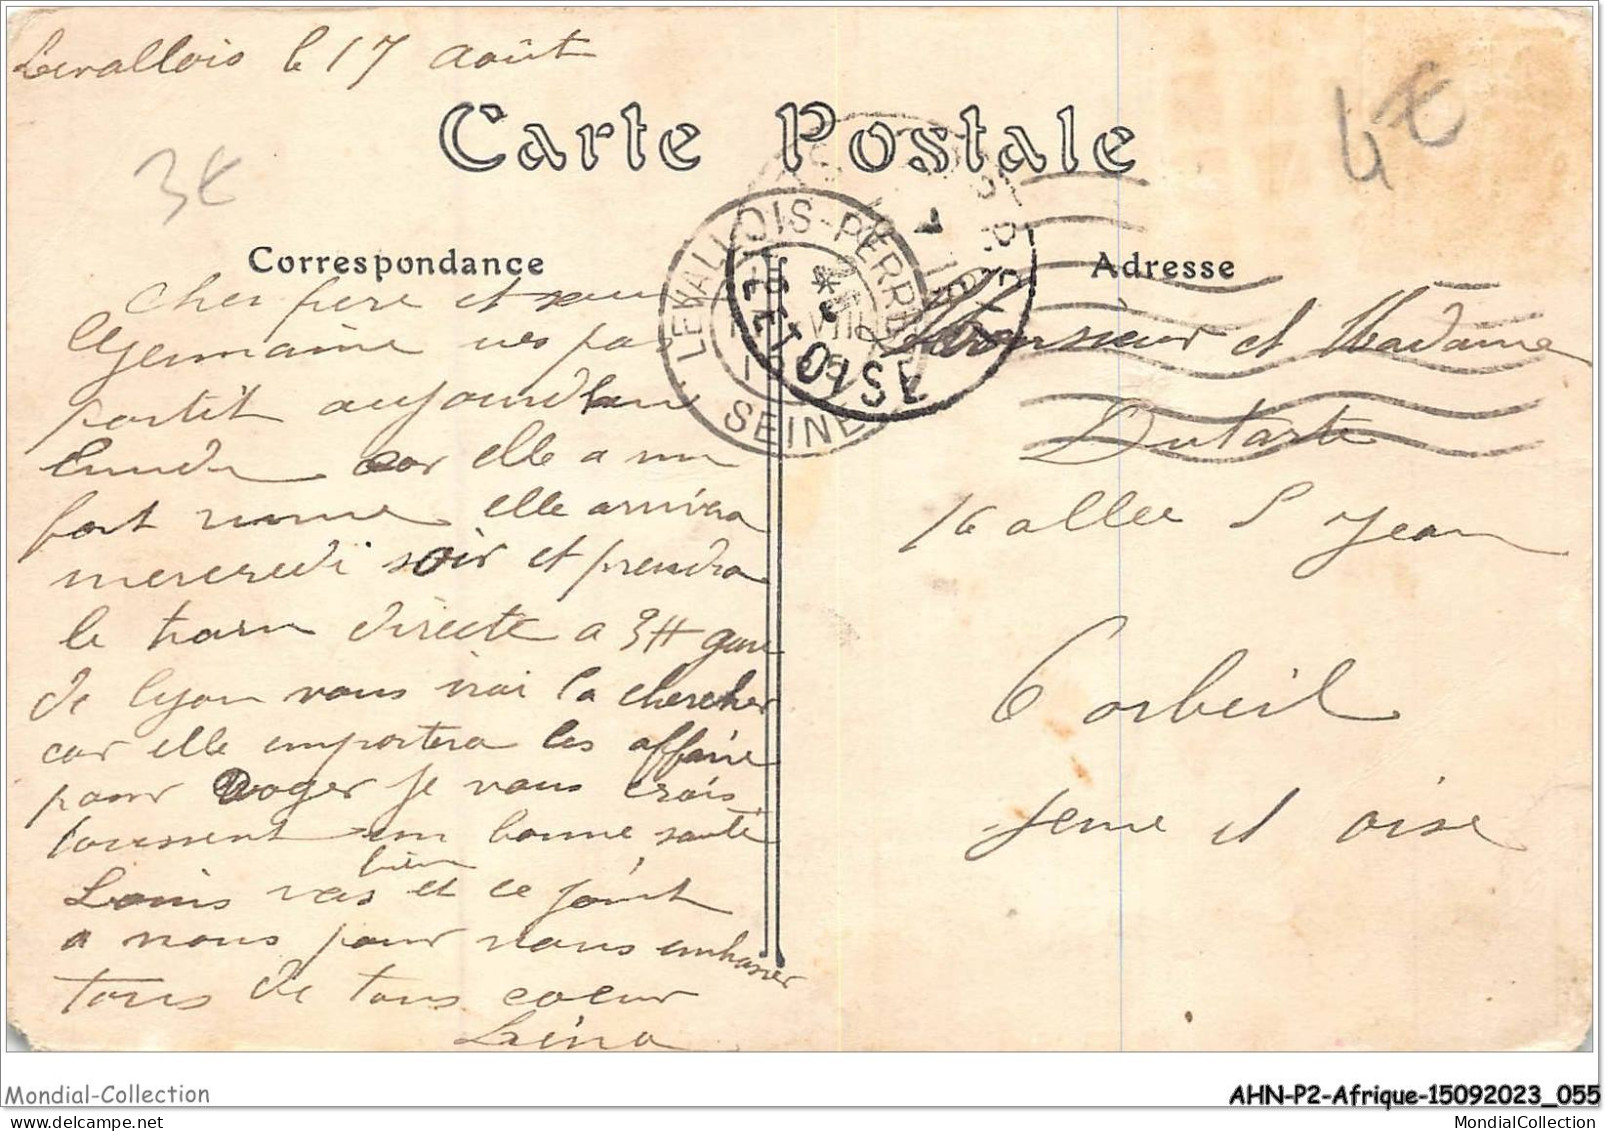 Levallois le 17 Août
Carte Postale
3€
4€
Correspondance
Cher frère et sœur
Germaine nes pas
partit aujourdhui
lundi car elle a un
fort rume elle arrivra
mercredi soir et prendra
le train directe a 3H gare
de lyon vous irai la chercher
car elle emportera les affaire
pour Roger je vous crois
toussent en bonne santé
Louis vas bien et ce joint
a nous pour vous embrasser
tous de tous coeur
LEVALLOIS-PERRET
SEINE
SEINE ET OISE
Adresse
Monsieur et Madame
Dutarte
16 allee S Jean
Corbeil
Seine et oise
Mondial-Collection
AHN-P2-Afrique-15092023_055
MondialCollection